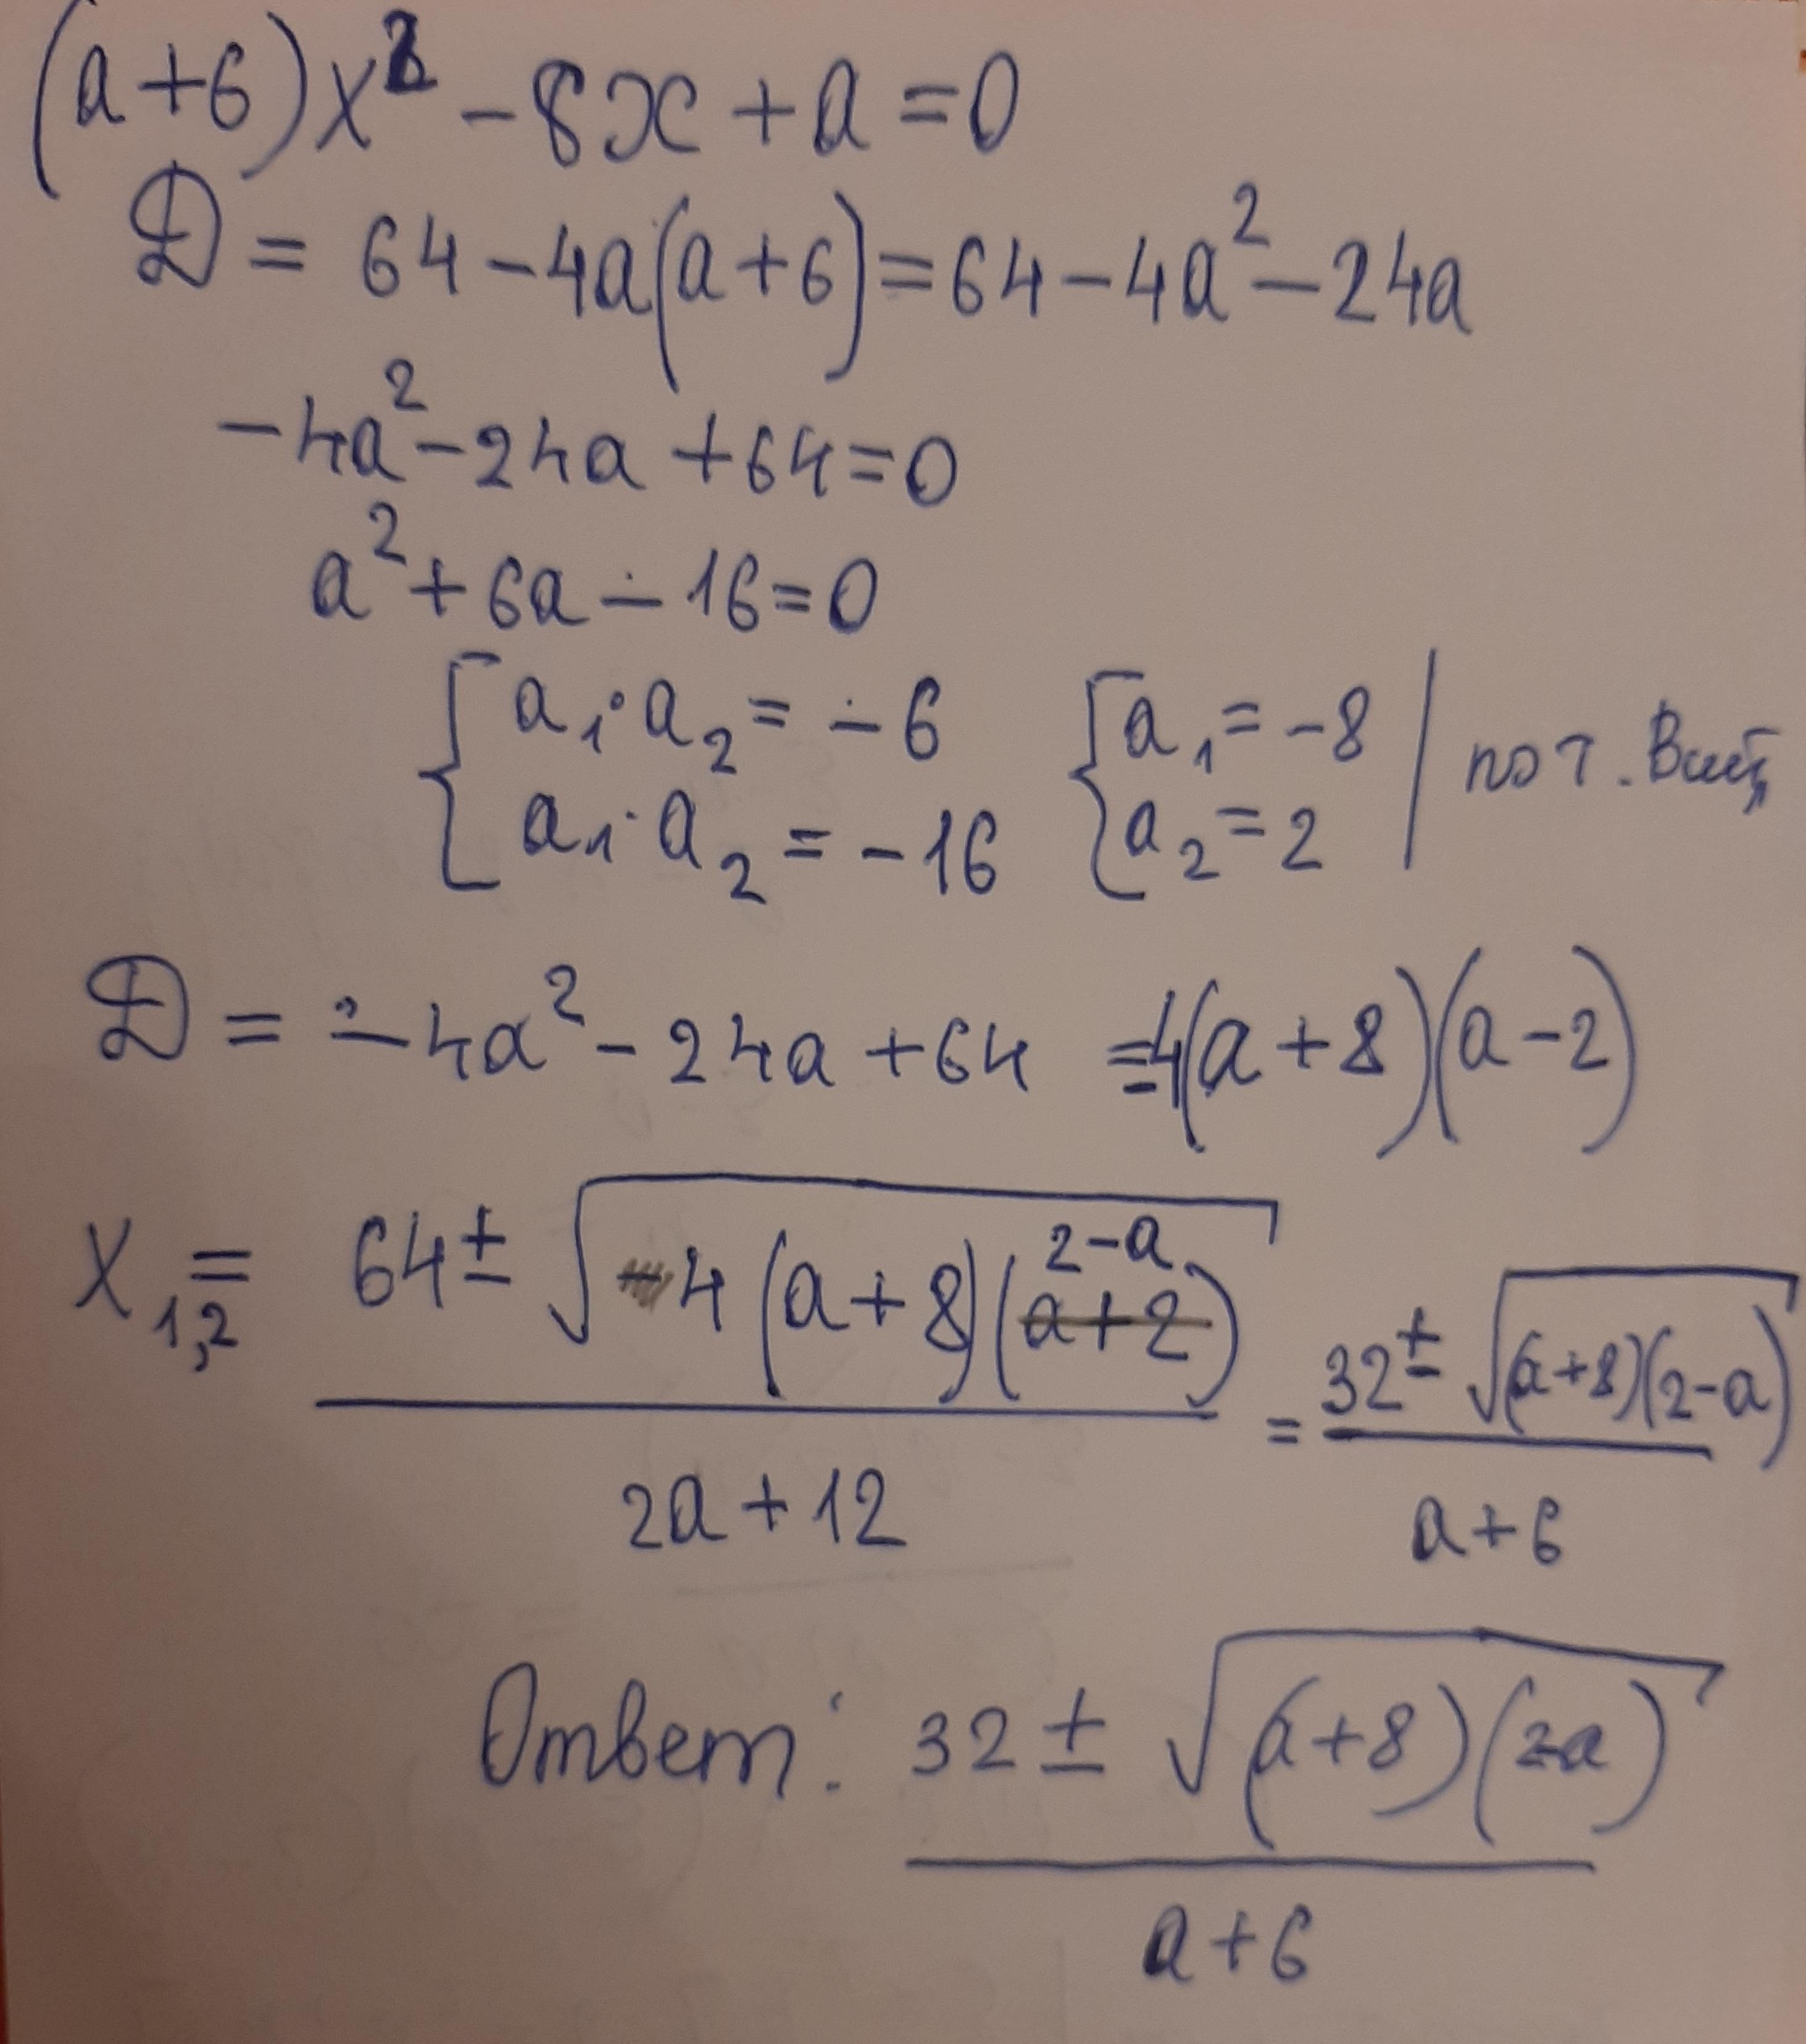 (a+6)x² - 8x + a = 0
D = 64 - 4a(a+6) = 64 - 4a² - 24a
-4a² - 24a + 64 = 0
a² + 6a - 16 = 0
{ a₁ · a₂ = -6 { a₁ = -8 | по т. Виета
{ a₁ · a₂ = -16 { a₂ = 2
D = -4a² - 24a + 64 = -4(a+8)(a-2)
x₁,₂ = (64 ± √(4(a+8)(2-a))) / (2a+12) = (32 ± √((a+8)(2-a))) / (a+6)
Ответ: (32 ± √((a+8)(2-a))) / (a+6)